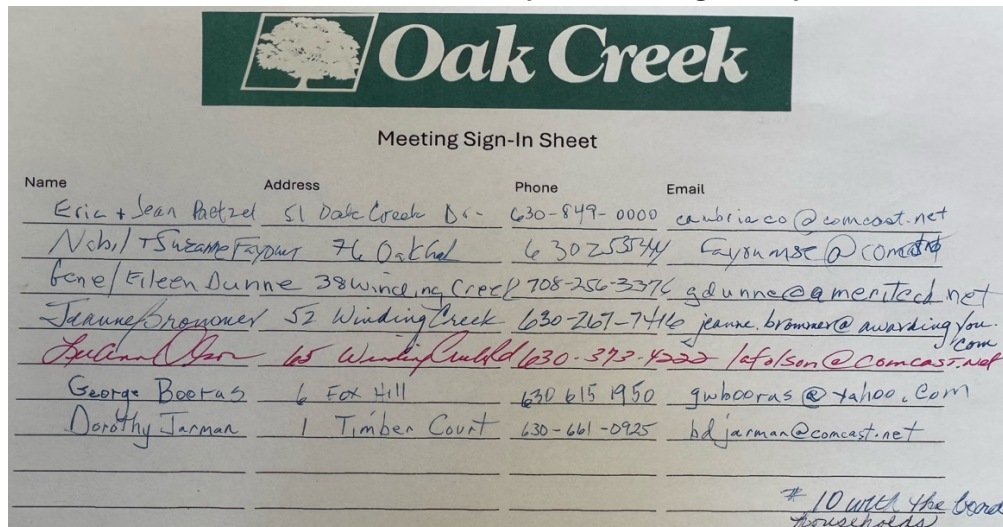 Oak Creek
Meeting Sign-In Sheet
Name Address Phone Email
Eric + Jean Paetzel 51 Oak Creek Dr. 630-849-0000 cambriaco@comcast.net
Nabil + Suzanne Fayoumi 76 Oak 630 2535444 @comcast
Gene/Eileen Dunne 38 Winding Creek 708-256-3376 gdunne@ameritech.net
Brommer 52 Winding Creek 630-267-7416 jeanne.brommer@awardingyou.
com
LuAnn Olson 65 Winding 630-373-4222 lafolson@comcast.net
George Booras 6 Fox Hill 630 615 1950 gwbooras@yahoo.com
Dorothy Jarman 1 Timber Court 630-661-0925 bdjarman@comcast.net
# 10 with the board
households